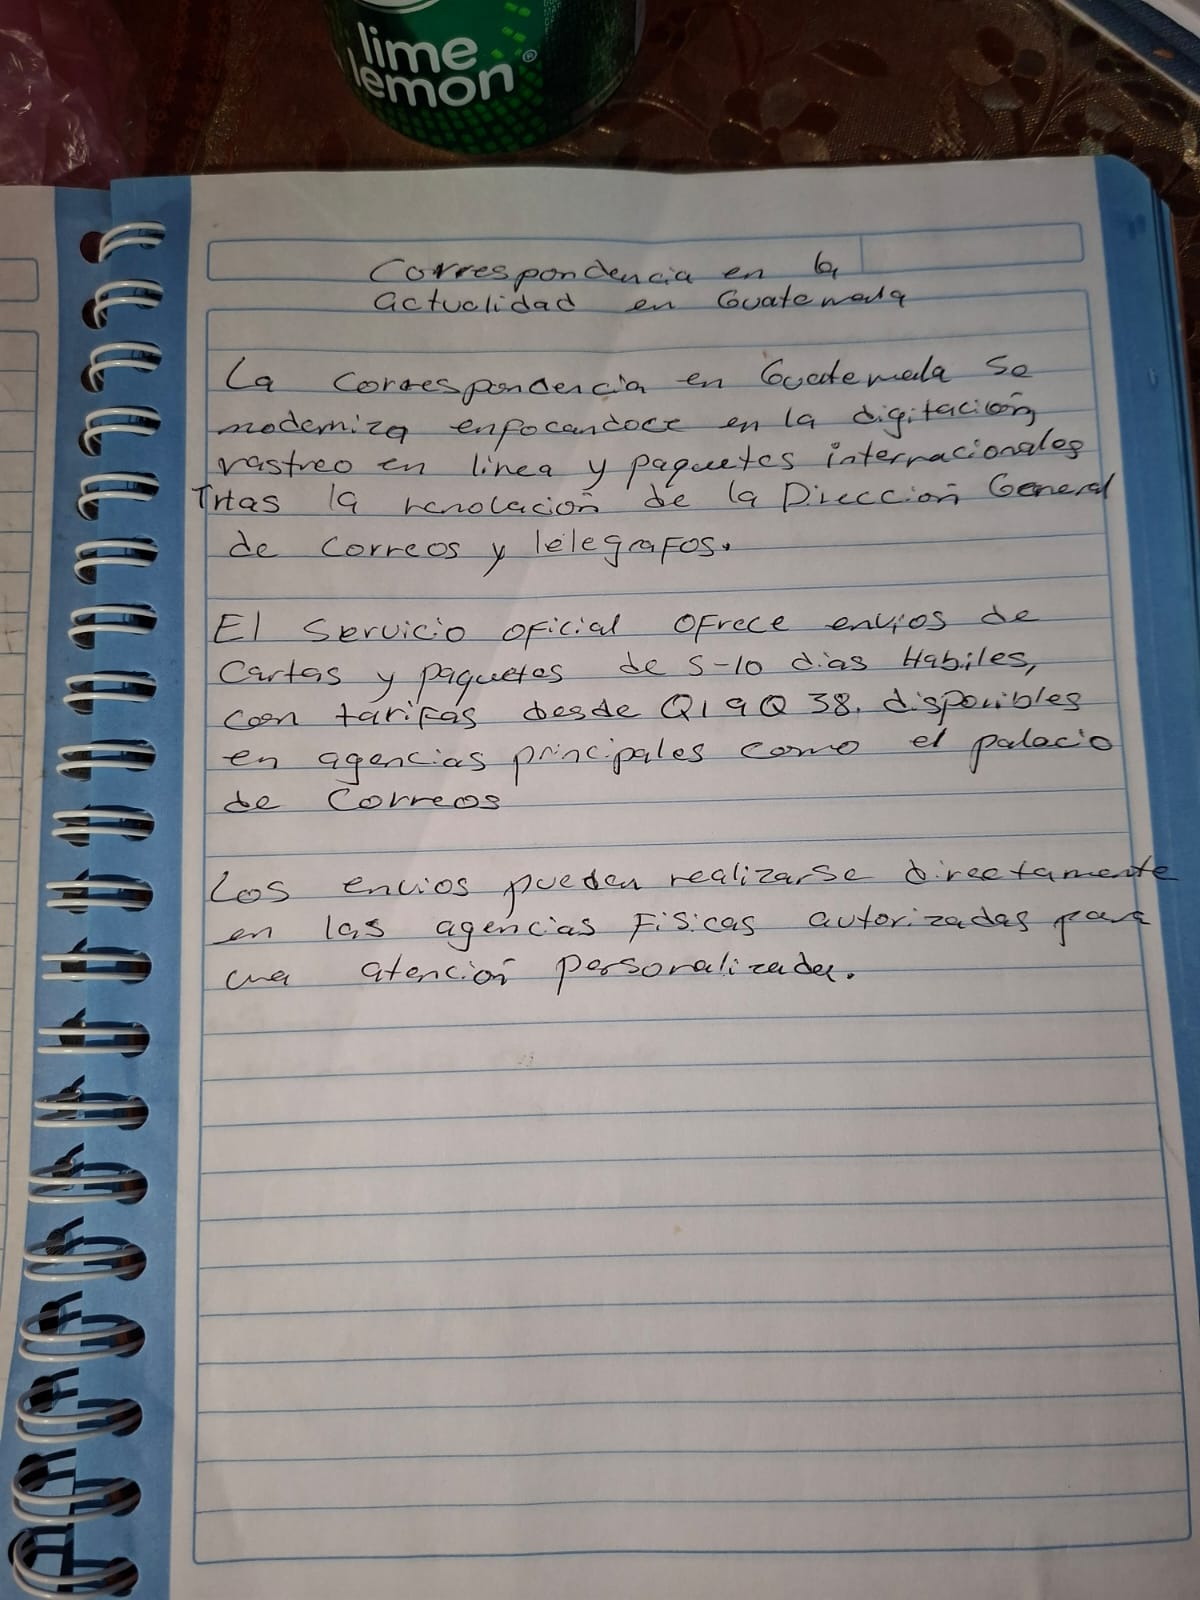 lime
lemon®
Correspondencia en la
actualidad en Guatemala
La correspondencia en Guatemala se
moderniza enfocandoce en la digitación
rastreo en linea y paquetes internacionales
Tras la renolación de la Dirección General
de correos y Telegrafos.
El Servicio oficial ofrece envios de
Cartas y paquetes de 5-10 dias Habiles,
con tarifas desde Q19Q38. disponibles
en agencias principales como el palacio
de Correos
Los envios pueden realizarse directamente
en las agencias Fisicas autorizadas para
una atención personalizada.